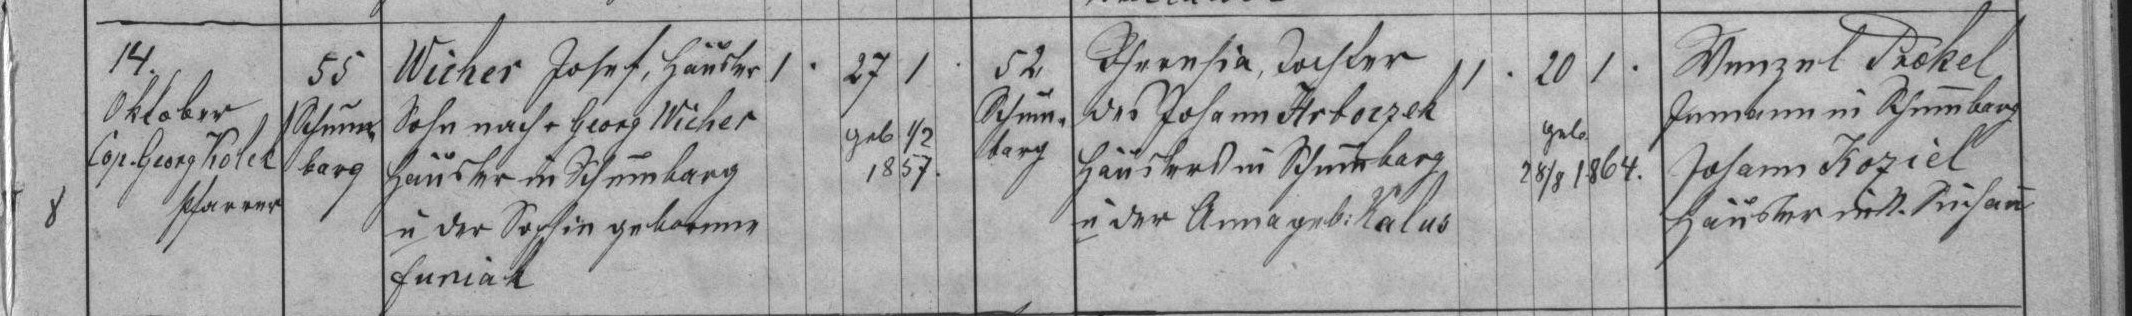 14.
Oktober
Cop. Georg Kolek
Pfarrer
8
55
Schum-
barg
Wicher Josef, Häusler
Sohn nach + Georg Wicher
Häusler in Schumbarg
u der Sophie geborene
Funiak
1 . 27 1 .
geb 1/2
1857.
52
Schum-
barg
Theresia, Tochter
des Johann Hrboczek
Häuslers in Schumbarg
u der Anna geb: Kalus
1 . 20 1 .
geb
28/8 1864.
Wenzel
Inmann in Schumbarg
Johann Koziel
Häusler in N. Suchau